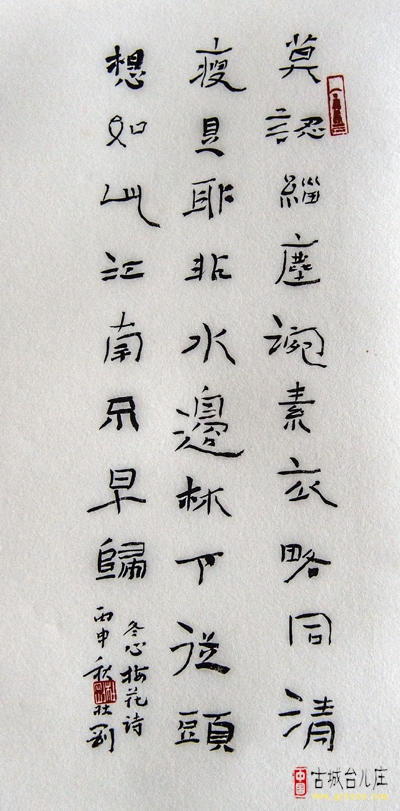 莫認緇塵涴素衣略同清
瘦是耶非水邊林下從頭
想如此江南不早歸
冬心梅花诗
丙申秋
中国
古城台儿庄